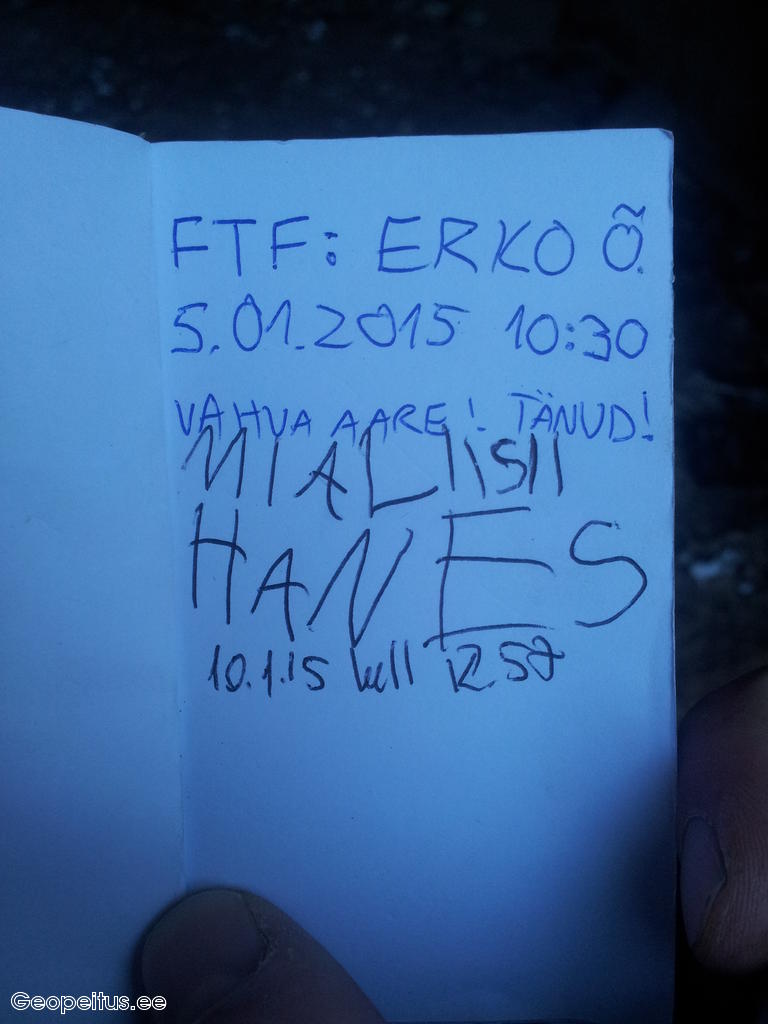 FTF: ERKO Õ.
5.01.2015 10:30
VAHVA AARE! TÄNUD!
MIALIISI
HANES
10.1.15 kell 12.57
Geopeitus.ee